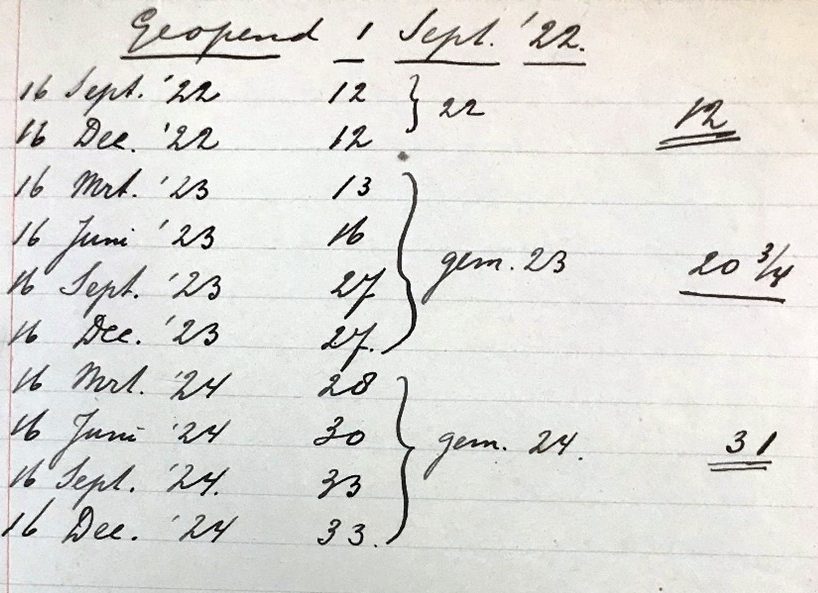 Geopend 1 Sept. '22.
16 Sept. '22 12 } 22 12
16 Dec. '22 12
16 Mrt. '23 13
16 Juni '23 16 gem. 23 20 3/4
16 Sept. '23 27
16 Dec. '23 27.
16 Mrt. '24 28
16 Juni '24 30 gem. 24. 31
16 Sept. '24. 33
16 Dec. '24 33.